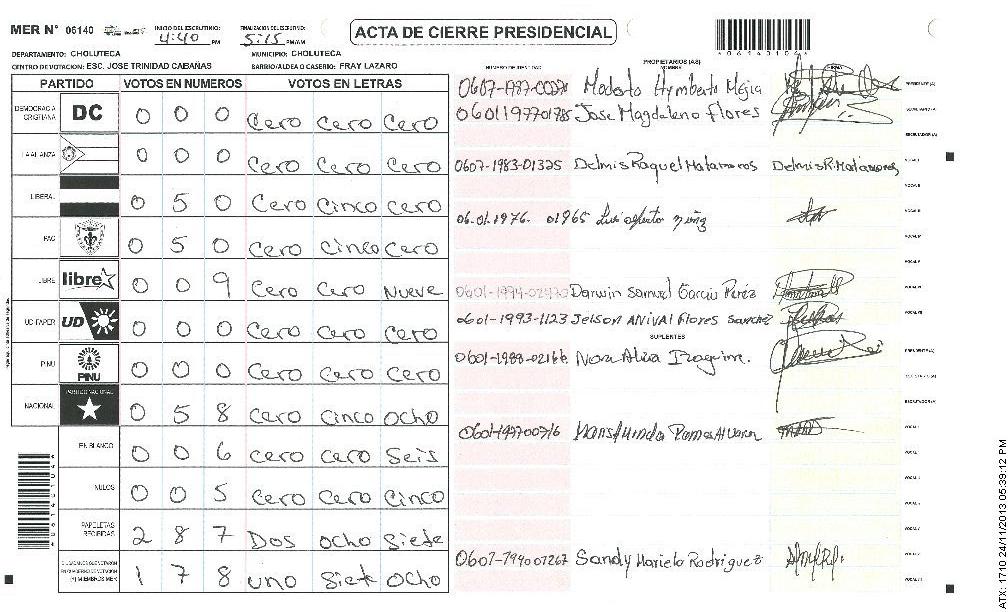 MER N° 06140
INICIO DEL ESCRUTINIO: 4:40 PM
FINALIZACION DEL ESCRUTINIO: 5:15 PM/AM
ACTA DE CIERRE PRESIDENCIAL
DEPARTAMENTO: CHOLUTECA MUNICIPIO: CHOLUTECA
CENTRO DE VOTACION: ESC. JOSE TRINIDAD CABAÑAS BARRIO/ALDEA O CASERIO: FRAY LAZARO
PARTIDO VOTOS EN NUMEROS VOTOS EN LETRAS
DEMOCRACIA CRISTIANA DC 0 0 0 Cero Cero Cero
LA ALIANZA 0 0 0 Cero Cero Cero
LIBERAL 0 5 0 Cero Cinco Cero
PAC 0 5 0 Cero Cinco Cero
LIBRE libre 0 0 9 Cero Cero Nueve
UD FAPER UD 0 0 0 Cero Cero Cero
PINU PINU 0 0 0 Cero Cero Cero
NACIONAL PARTIDO NACIONAL 0 5 8 Cero Cinco Ocho
EN BLANCO 0 0 6 Cero Cero Seis
NULOS 0 0 5 Cero Cero Cinco
PAPELETAS RECIBIDAS 2 8 7 Dos Ocho Siete
CIUDADANOS QUE VOTARON EN CUADERNO DE VOTACION (+) MIEMBROS MER 1 7 8 uno Siete Ocho
PROPIETARIOS (AS)
NUMERO DE IDENTIDAD NOMBRE FIRMA
Modesto Humberto Mejia PRESIDENTE(A)
0601197701785 Jose Magdaleno Flores SECRETARIO(A)
ESCRUTADOR(A)
0607-1983-01325 Delmis Raquel Matamoros Delmis R. Matamoros VOCAL I
06.01.1976. 01965 Luis
Darwin Samuel Garcia Perez
0601-1993-1123 Jelson ANiVal Flores Sanchez
SUPLENTES
Nora PRESIDENTE(A)
ESCRUTADOR(A)
Sandy Mariela Rodriguez
ATX: 1710 24/11/2013 05:39:12 PM